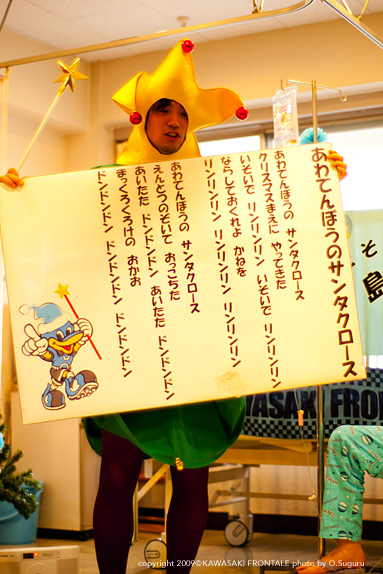 あわてんぼうのサンタクロース
あわてんぼうの サンタクロース
クリスマスまえに やってきた
いそいで リンリンリン いそいで リンリンリン
ならしておくれよ かねを
リンリンリン リンリンリン リンリンリン
あわてんぼうの サンタクロース
えんとつのぞいて おっこちた
あいたた ドンドンドン あいたた ドンドンドン
まっくろくろけの おかお
ドンドンドン ドンドンドン ドンドンドン
そ
島
WASAKI FRON
copyright 2009©KAWASAKI FRONTALE photo by O.Suguru